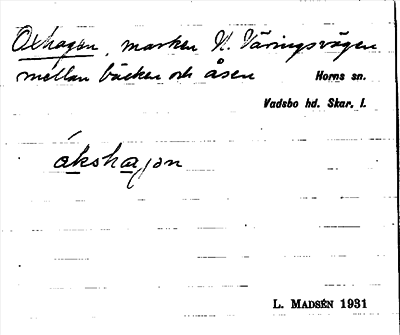 Oxhagen, marken V. Väringsvägen
mellan bäcken och åsen
Horns sn.
Vadsbo hd. Skar. l.
ókshagən
L. MADSÉN 1931